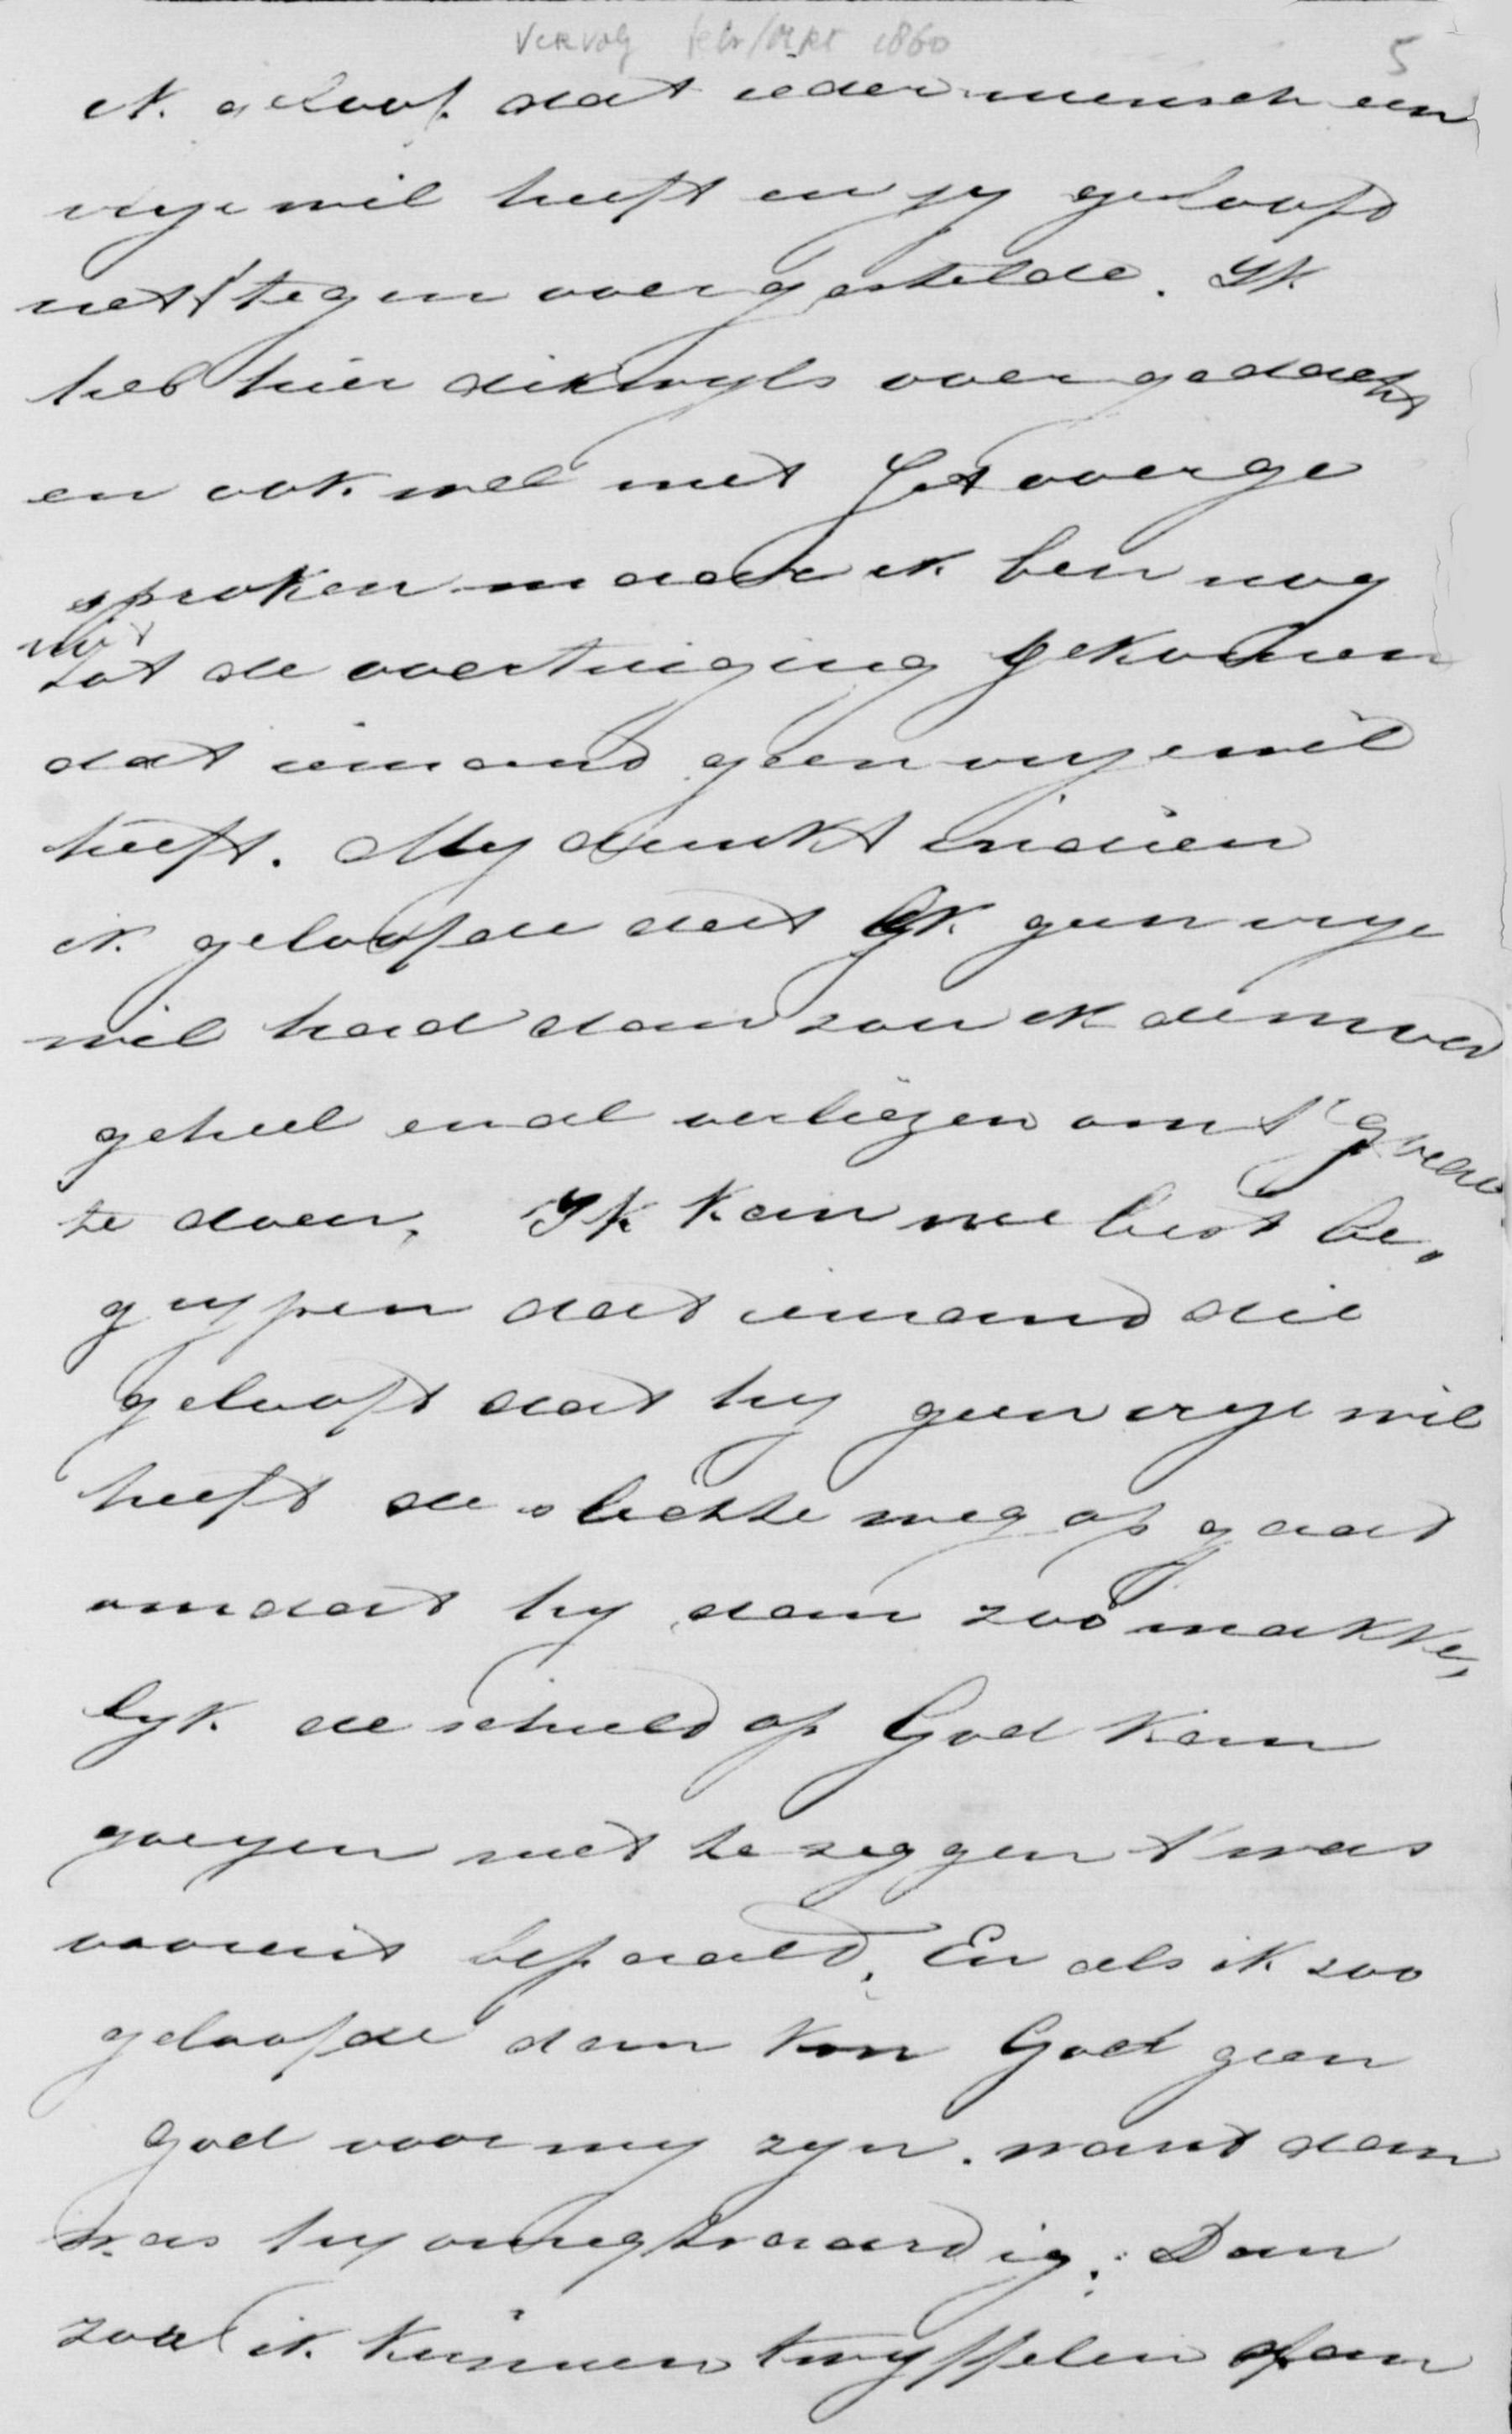 Vervolg febr/Mrt 1860
5
ik geloof dat ieder mensch een
vrije wil heeft en jy gelooft
net 't tegenovergestelde. Ik
heb hier dikwyls over gedacht
en ook wel met Jet overge
sproken maar ik ben nog
niet
tot de overtuiging gekomen
dat iemand geen vrye wil
heeft. My dunkt indien
ik geloofde dat ik geen vrye
wil had dan zou ik de moed
geheel en al verliezen om 't goede
te doen. Ik kan me best be,
grypen dat iemand die
gelooft dat hy geen vrye wil
heeft de slechte weg op gaat
omdat hy dan zoo makke,
lyk de schuld op God kan
gooyen met te zeggen 't was
vooruit bepaald. En als ik zoo
geloofde dan kon God geen
God voor my zyn. want dan
was hy onregtvaardig. Dan
zou ik kunnen twyffelen aan